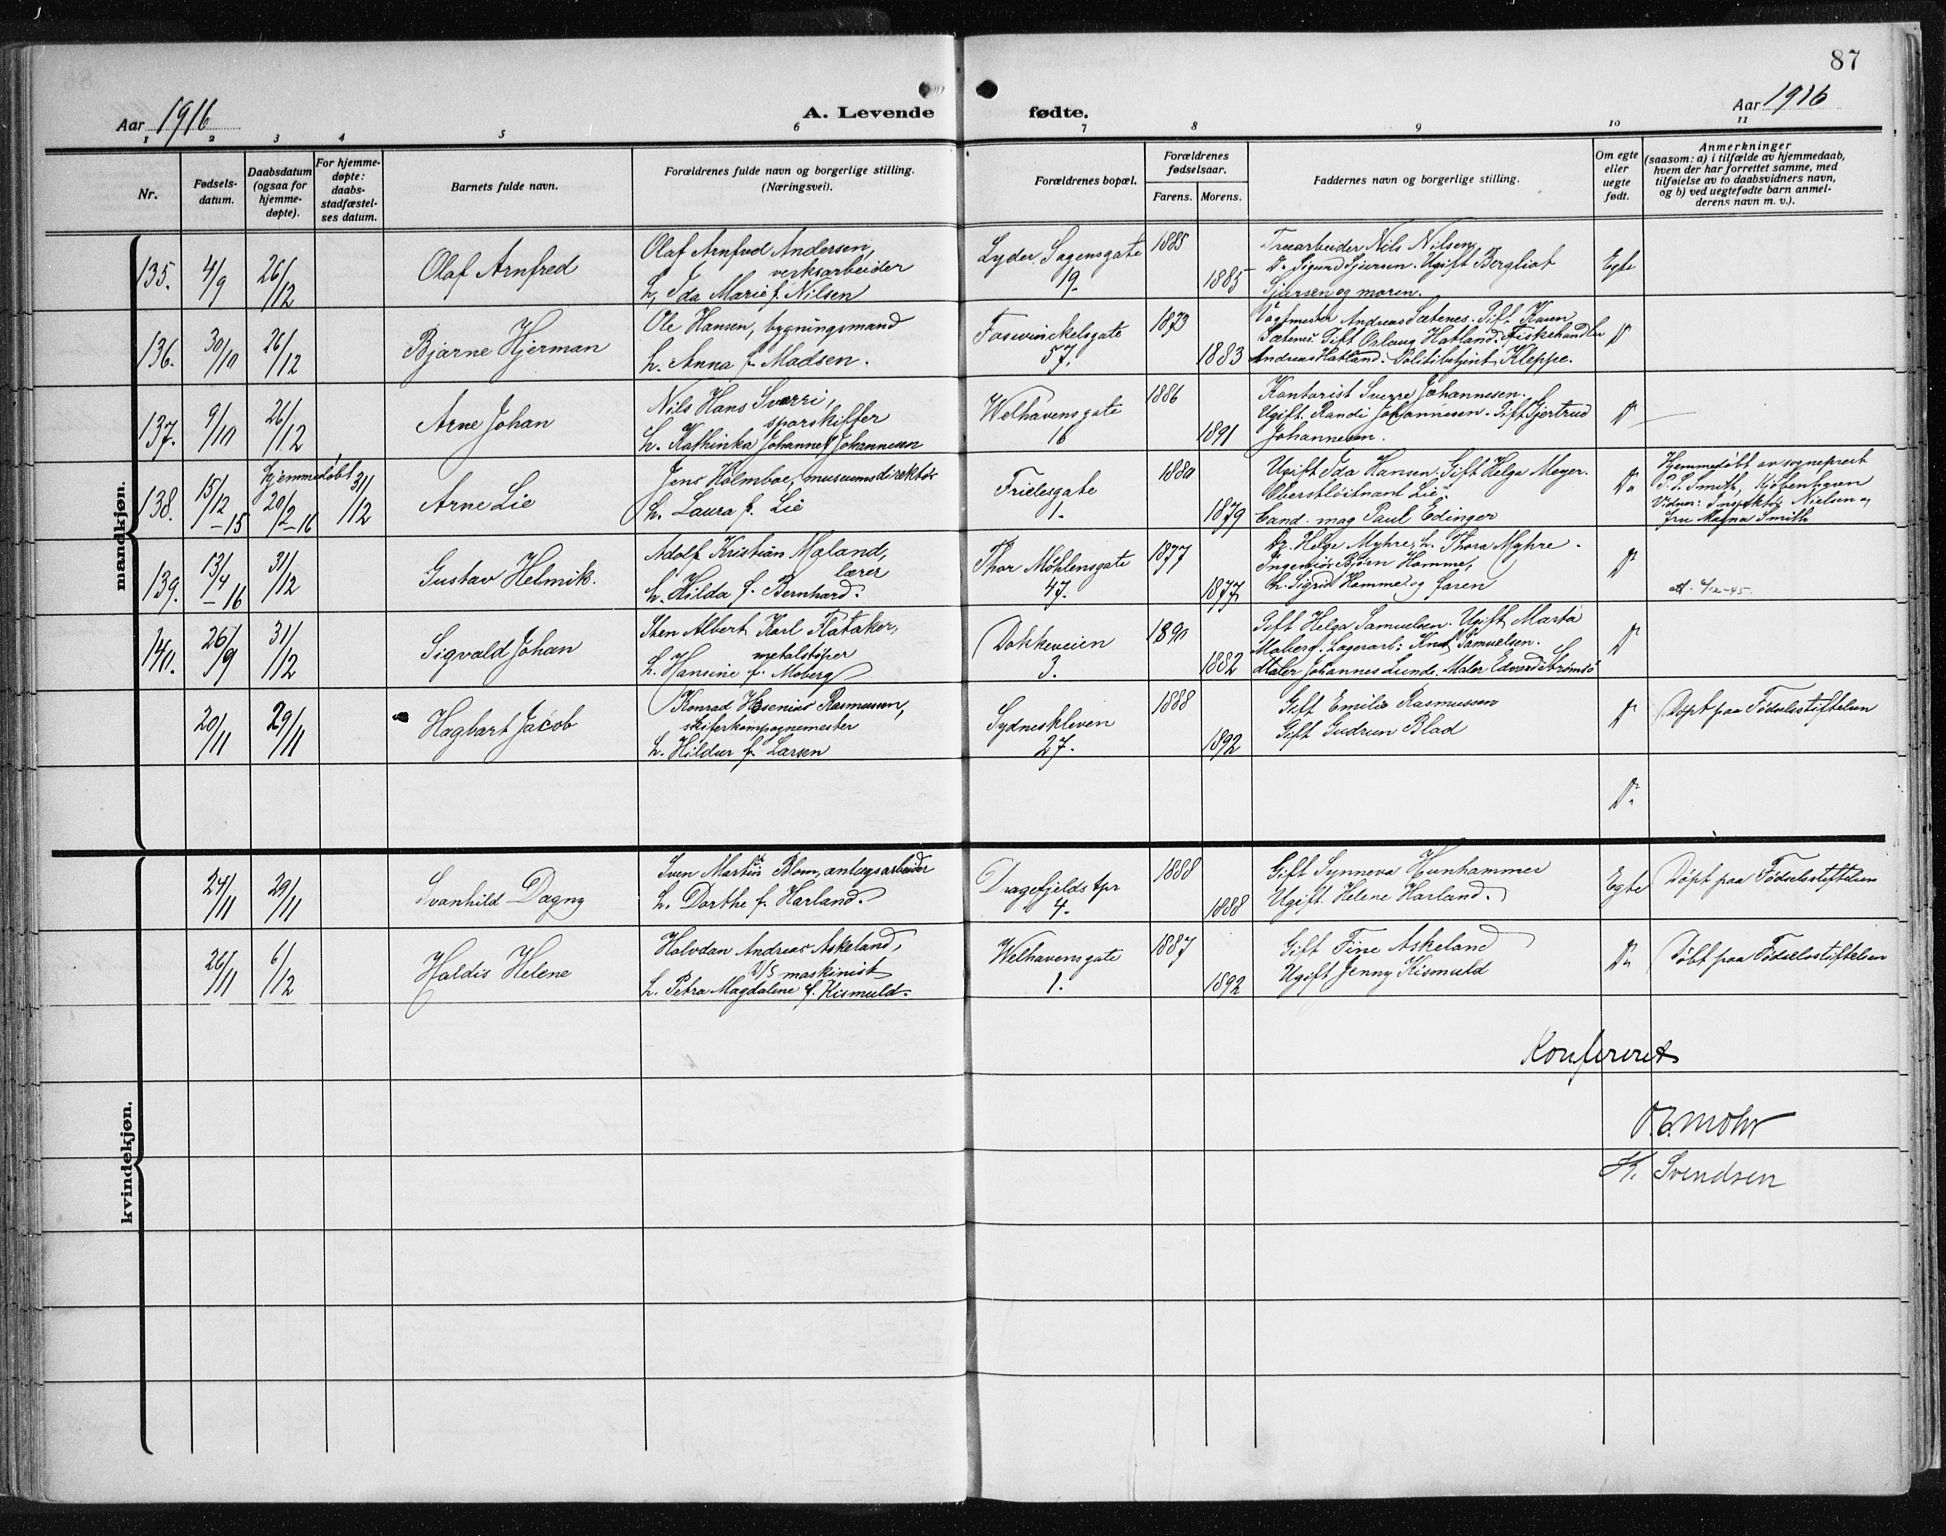 87
Aar 1916
A. Levende
fødte.
Aar 1916
1 2 3 4 5 6 7 8 9 10 11
Nr.
Fødsels-
datum.
Daabsdatum
(ogsaa for
hjemme-
døpte).
For hjemme-
døpte:
daabs-
stadfæstel-
ses datum.
Barnets fulde navn.
Forældrenes fulde navn og borgerlige stilling.
(Næringsvei).
Forældrenes bopæl.
Forældrenes
fødselsaar.
Farens. Morens.
Faddernes navn og borgerlige stilling.
Om egte
eller
uegte
født.
Anmerkninger
(saasom: a) i tilfælde av hjemmedaab,
hvem der har forrettet samme, med
tilføielse av to daabsvidners navn,
og b) ved uegtefødte barn anmel-
derens navn m. v.).
mandkjøn.
135. 4/9 26/12
Olaf Arnfred
Olaf Arnfred Andersen,
verksarbeider
h. Ida Marie f. Nilsen
Lyder Sagensgate
19.
1885
1885
Træarbeider Nils Nilsen,
Do Sigurd Sjursen. Ugift Bergliot
Sjursen og moren.
Egte
136. 30/10 26/12
Bjarne Hjerman
Ole Hansen, bygningsmand
h. Anna f. Madsen.
Fosswinckelsgate
57.
1873
1883
Vagtmester Andreas Sætenes. Gift Karen
Sætenes. Gift Orlaug Hatland. Fiskehandler
Andreas Hatland. Politibetjent Kleppe.
Do
137. 9/10 26/12
Arne Johan
Nils Hans Sverri,
sporskifter
h. Kathinka Johanne f. Johannesen
Welhavensgate
16
1886
1891
Kontorist Sverre Johannesen.
Ugift Randi Johannesen. Gift Gjertrud
Johannesen.
Do
138. 15/12-15
Hjemmedøbt
20/2-16
31/12
Arne Lie
Jens Holmboe, museumsdirektør
h. Laura f. Lie
Frielesgate
1.
1880
1879
Ugift Ida Hansen. Gift Helga Meyer.
Oberstløitnant Lie,
Cand. mag Paul Edinger
Do
Hjemmedøbt av sogneprest
P. P. Smith, Kjøbenhavn
Vidner: Inspektør Nielsen og
fru Magna Smith
139. 13/4-16 31/12
Gustav Helmik.
Adolf Kristian Moland,
lærer
h. Hilda f. Bernhard.
Thor Møhlensgate
47.
1877
1877
Dr. Helge Myhre, h. Thora Myhre.
Ingeniør Bjørn Homme,
h. Sigrid Homme og faren
Do
att. 4/12-45
140. 26/9 31/12
Sigvald Johan
Sten Albert Karl Flataker,
metalstøper
h. Hansine f. Moberg
Dokkeveien
3.
1890
1882
Gift Helga Samuelsen. Ugift Marta
Moberg. Lagerarb. Knut Samuelsen.
Maler Johannes Lunde. Maler Edvard Strømsø
Do
20/11 29/11
Hagbart Jacob
Konrad Hosenius Rasmussen,
skiferkompagnemester
h. Hildur f. Larsen
Sydneskleven
27.
1888
1892
Gift Emilie Rasmussen
Gift Gudrun Blad
Do
Døpt paa Fødselsstiftelsen
Do
kvindekjøn.
24/11 29/11
Svanhild Dagny
Sven Martin Blom, anlægsarbeider
h. Dorthe f. Harland.
Dragefjeldstpr
4.
1888
1888
Gift Synneva Hunhammer
Ugift Helene Harland.
Egte
Døpt paa Fødselsstiftelsen
26/11 6/12
Haldis Helene
Halvdan Andreas Askeland,
D/S maskinist
h. Petra Magdalene f. Kismuld.
Welhavensgate
1.
1887
1892
Gift Tine Askeland
Ugift Jenny Kismuld
Do
Døbt paa Fødselsstiftelsen
Konfereret
O. C. Mohr
K. Svendsen